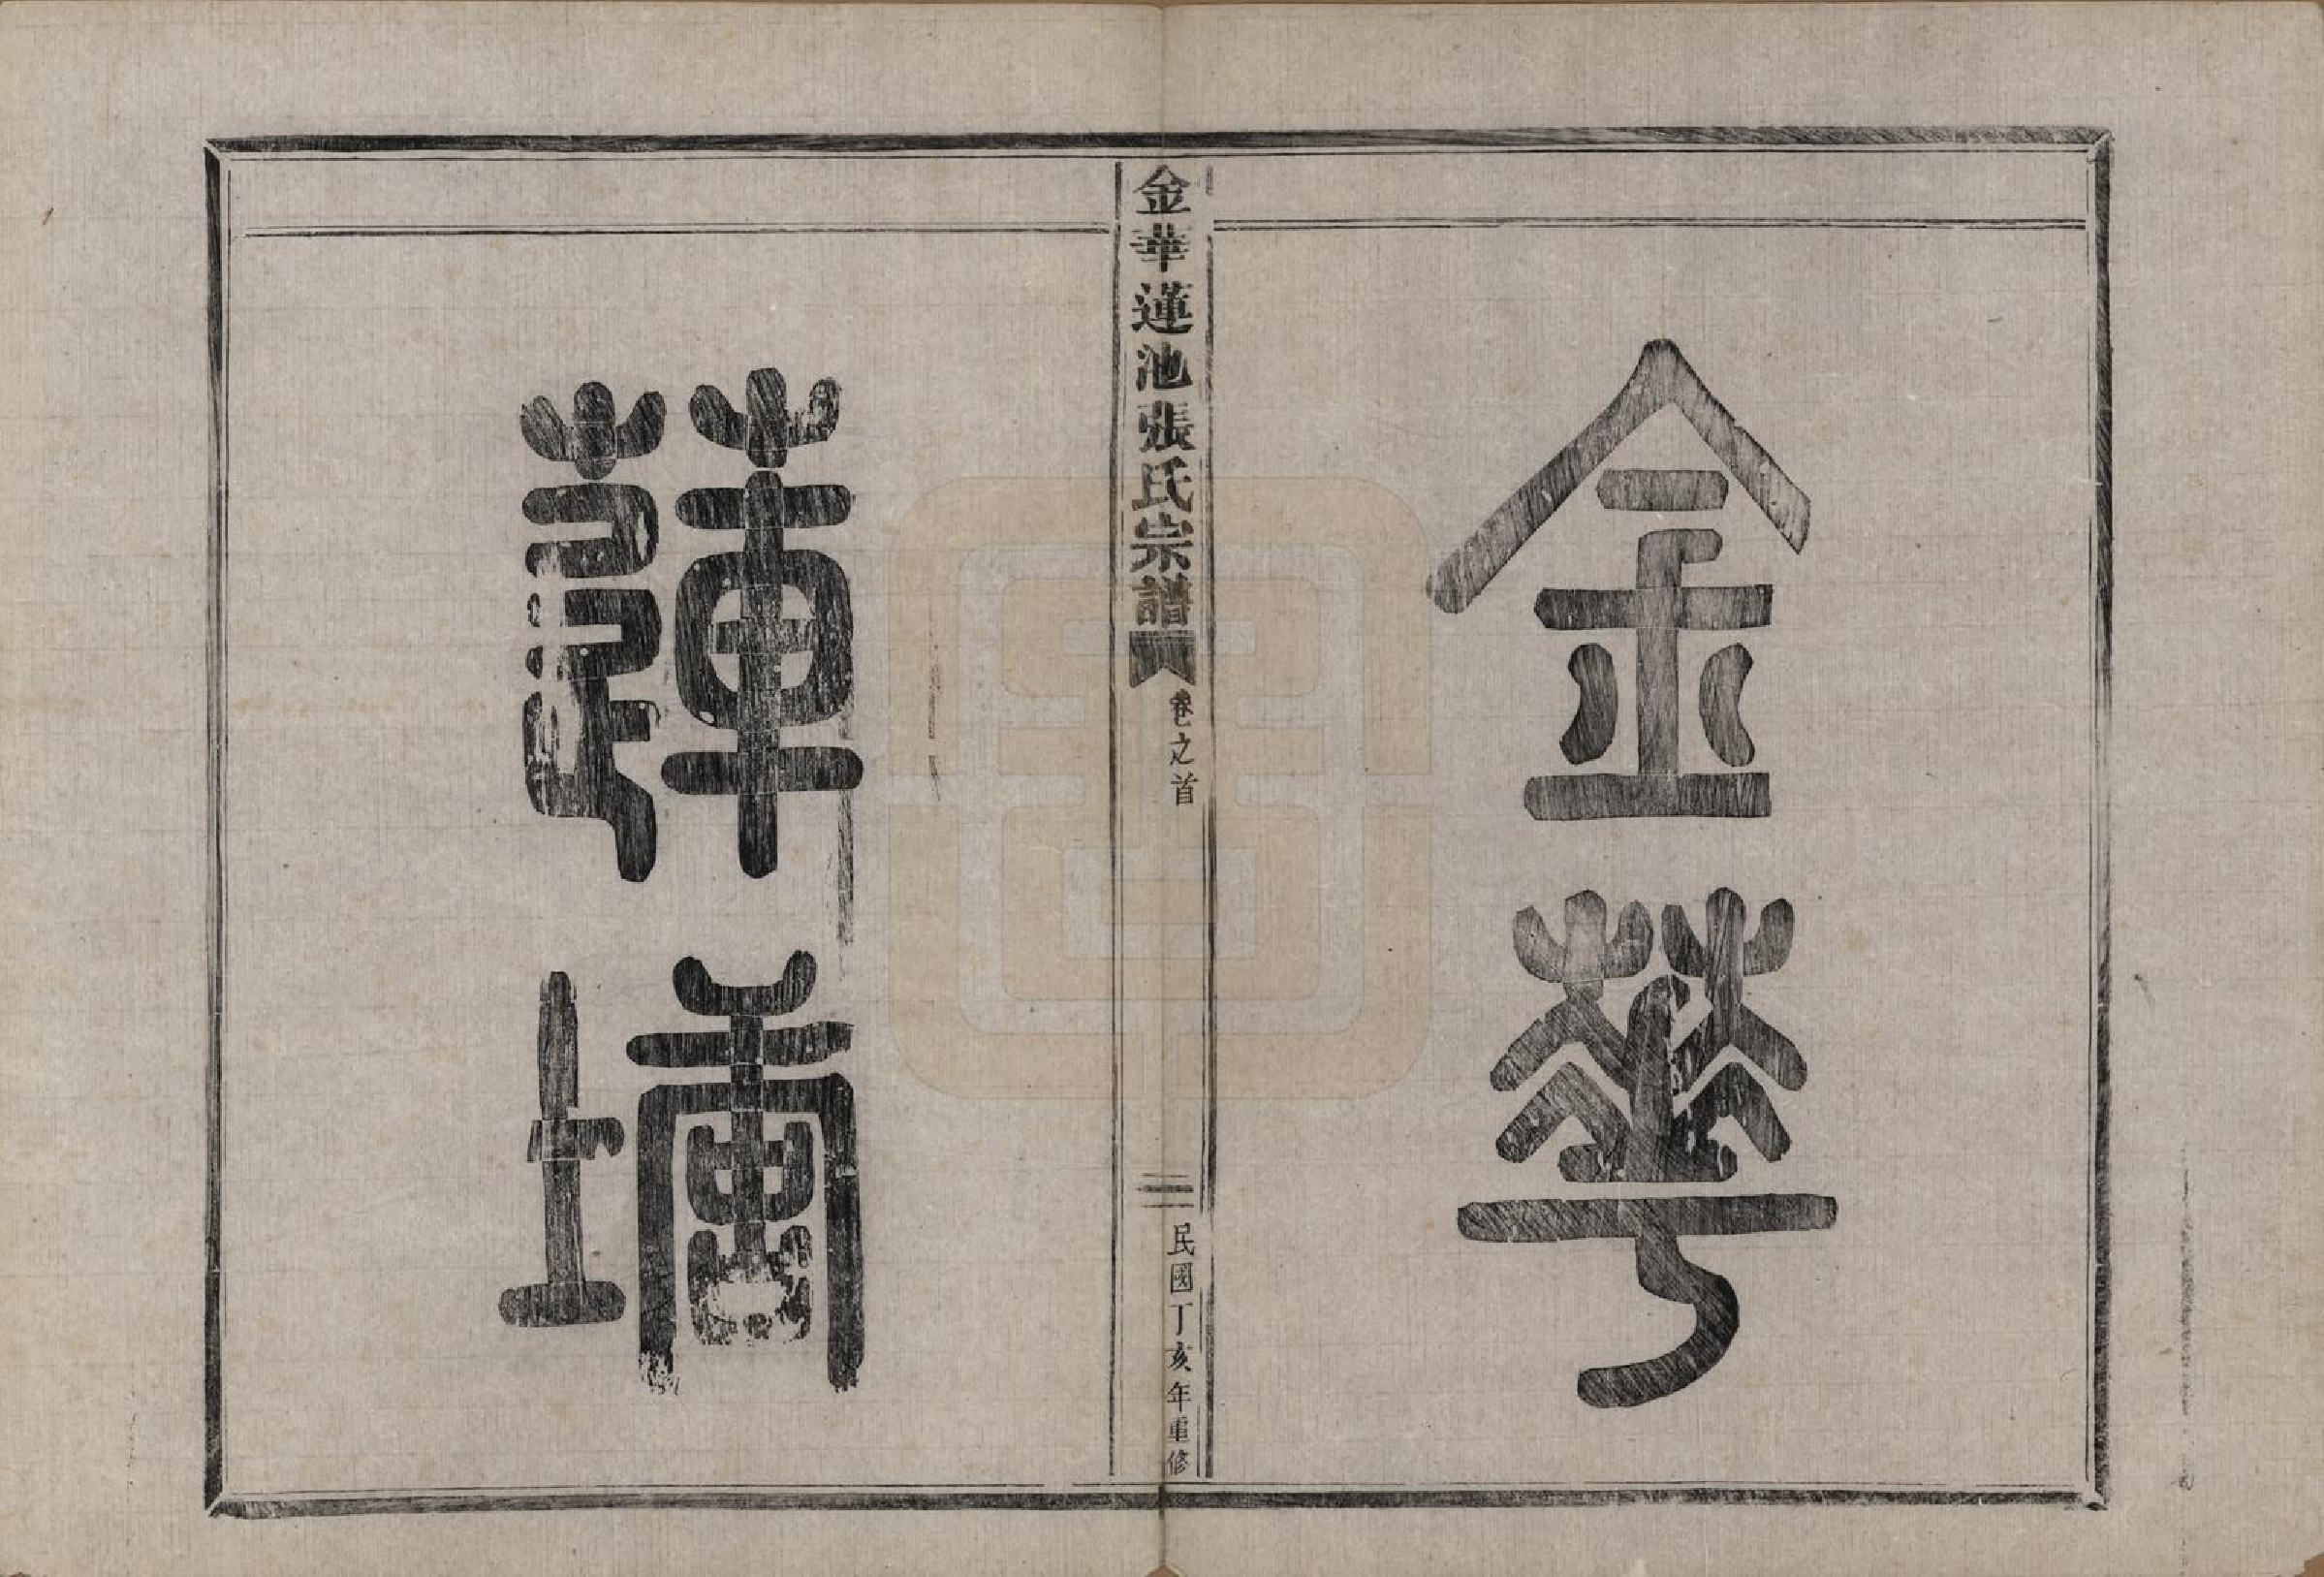 金華
金華蓮池張氏宗譜
卷之首
二
民國丁亥年重修
蓮塘